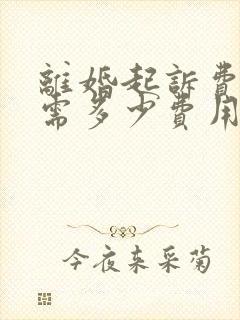 離婚起訴費
需多少費用
今夜来采菊